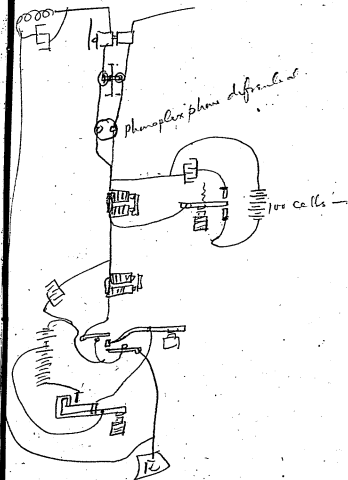 phonoplex phone differential
100 cells —
R